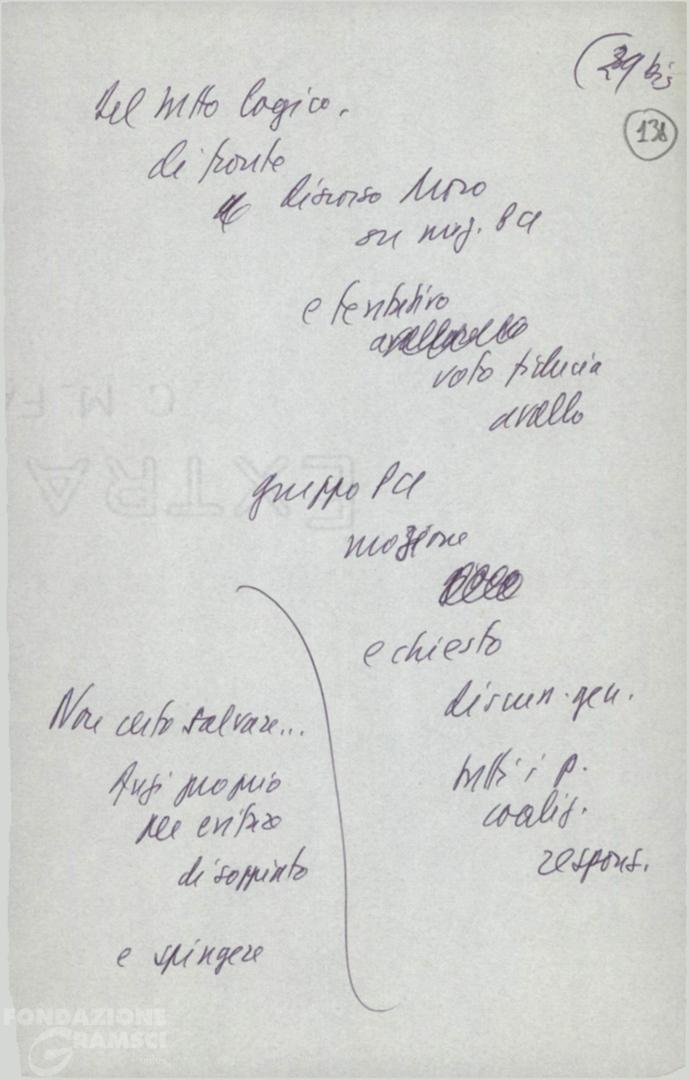 (29 bis
138
Del tutto logico.
di fronte
a discorso Moro
su mag. PCI
e tentativo
voto fiducia
avallo
gruppo PCI
mozione
e chiesto
discuss. gen.
tutti i p.
coaliz.
respons.
Non certo salvare...
Anzi proprio
per evitare
di soppiatto
e spingere
EXTRA
FONDAZIONE
GRAMSCI